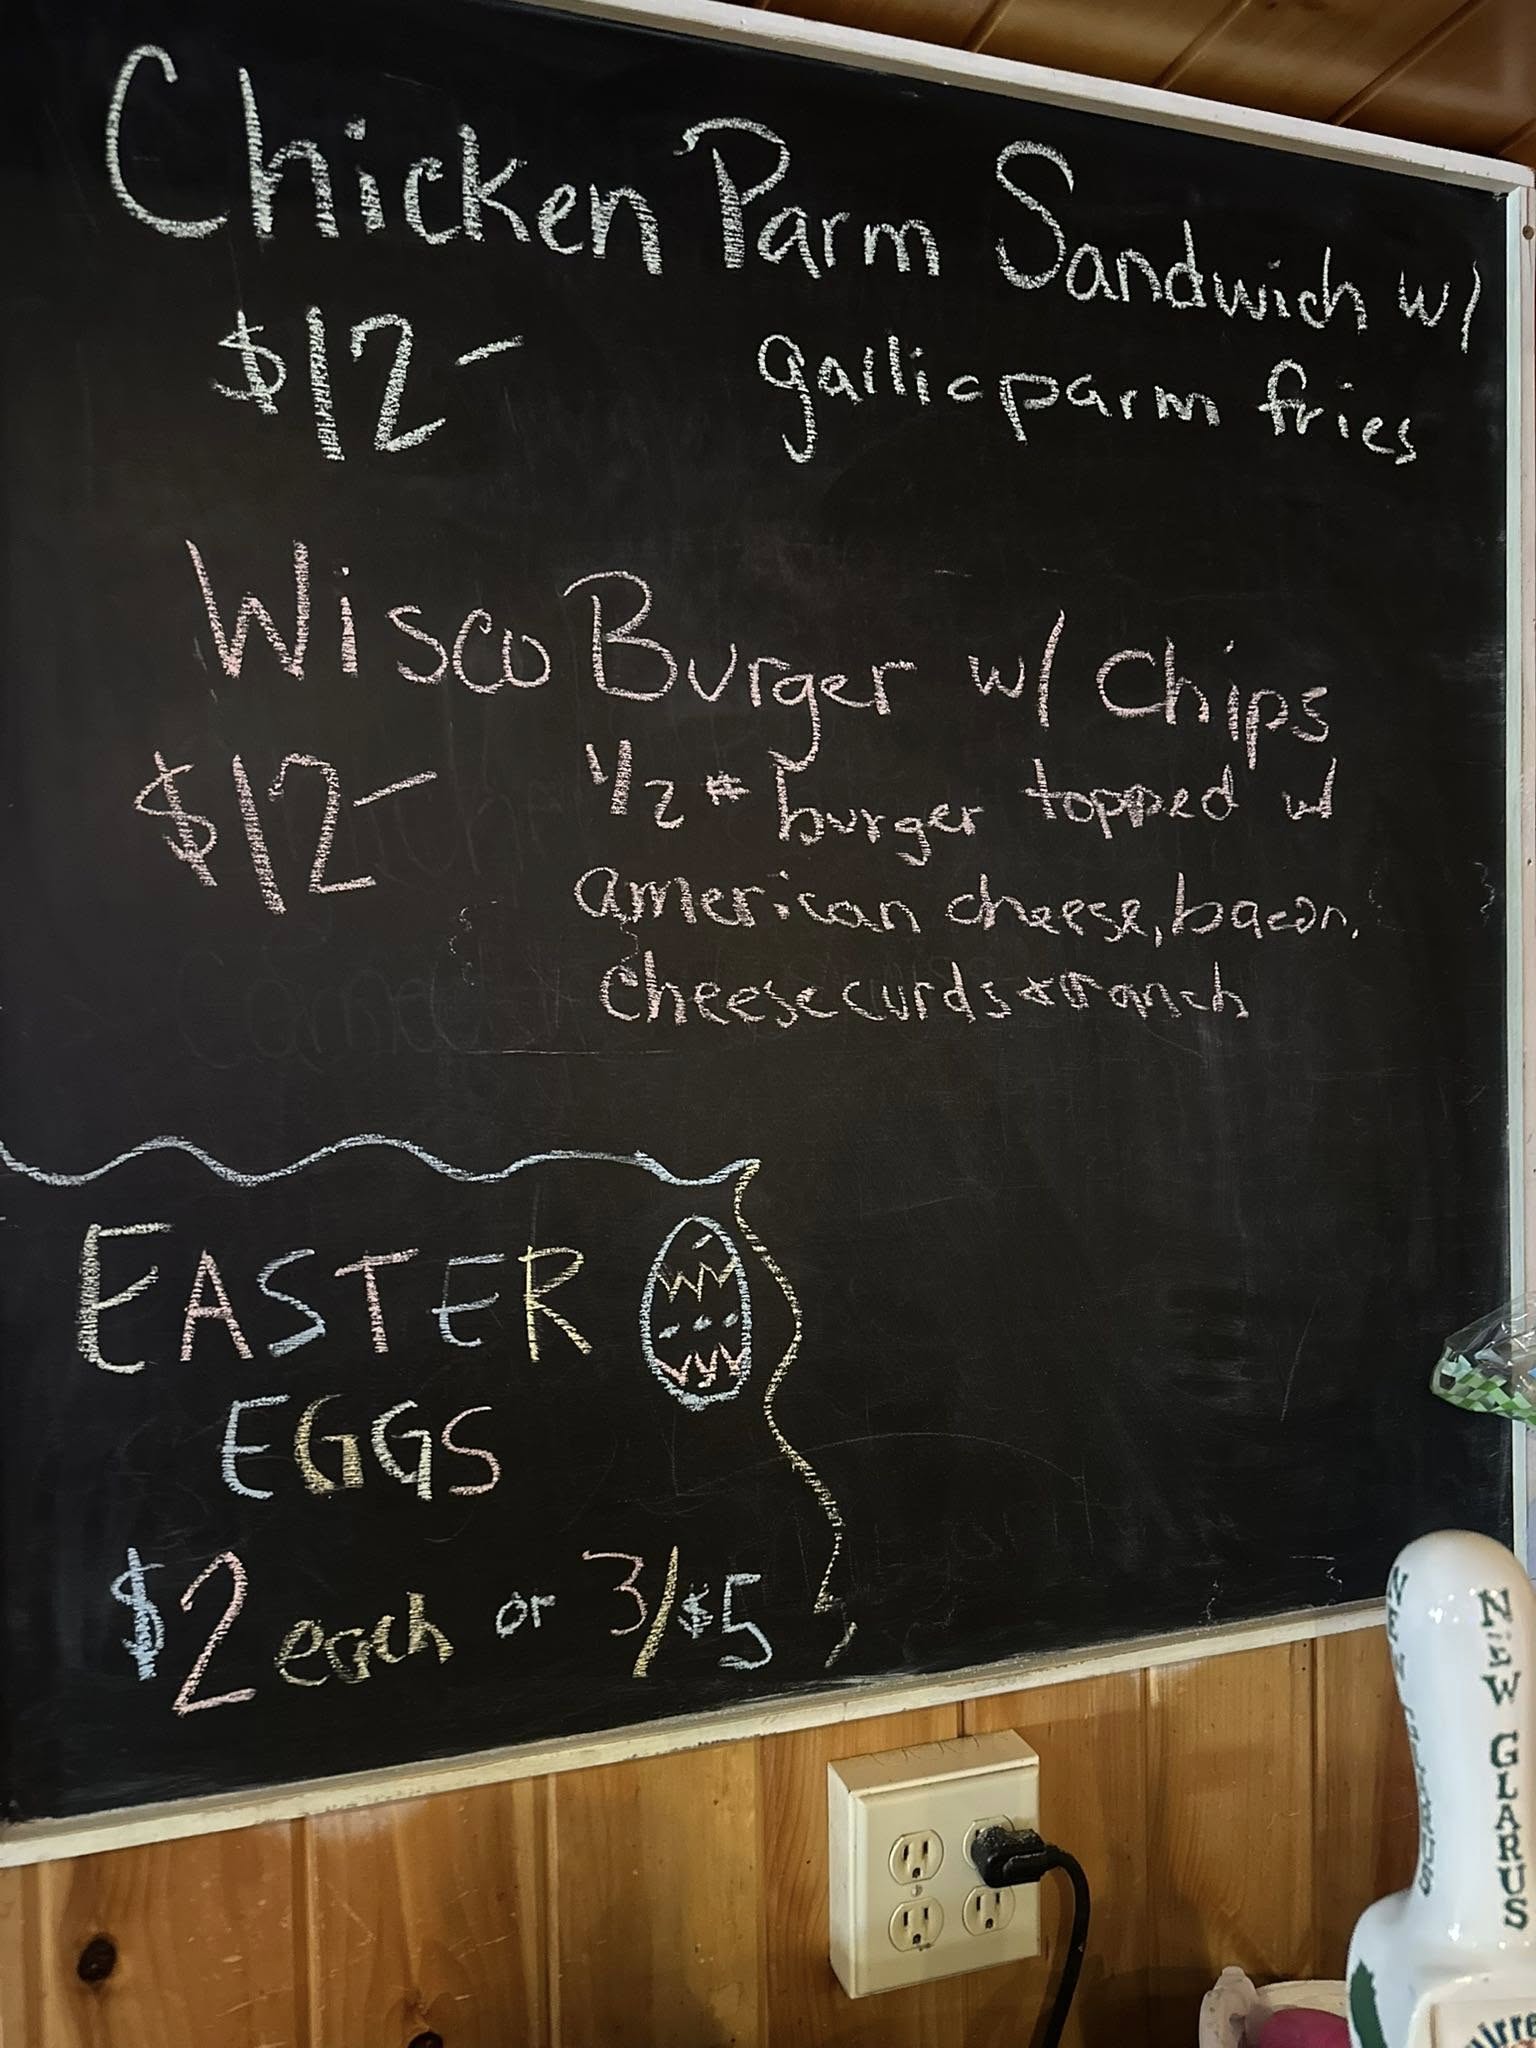 Chicken Parm Sandwich w/
$12- garlic parm fries
Wisco Burger w/ Chips
$12- 1/2 # burger topped w/
american cheese, bacon,
cheese curds & ranch
EASTER
EGGS
$2 each or 3/$5
NEW GLARUS
NEW GLARUS